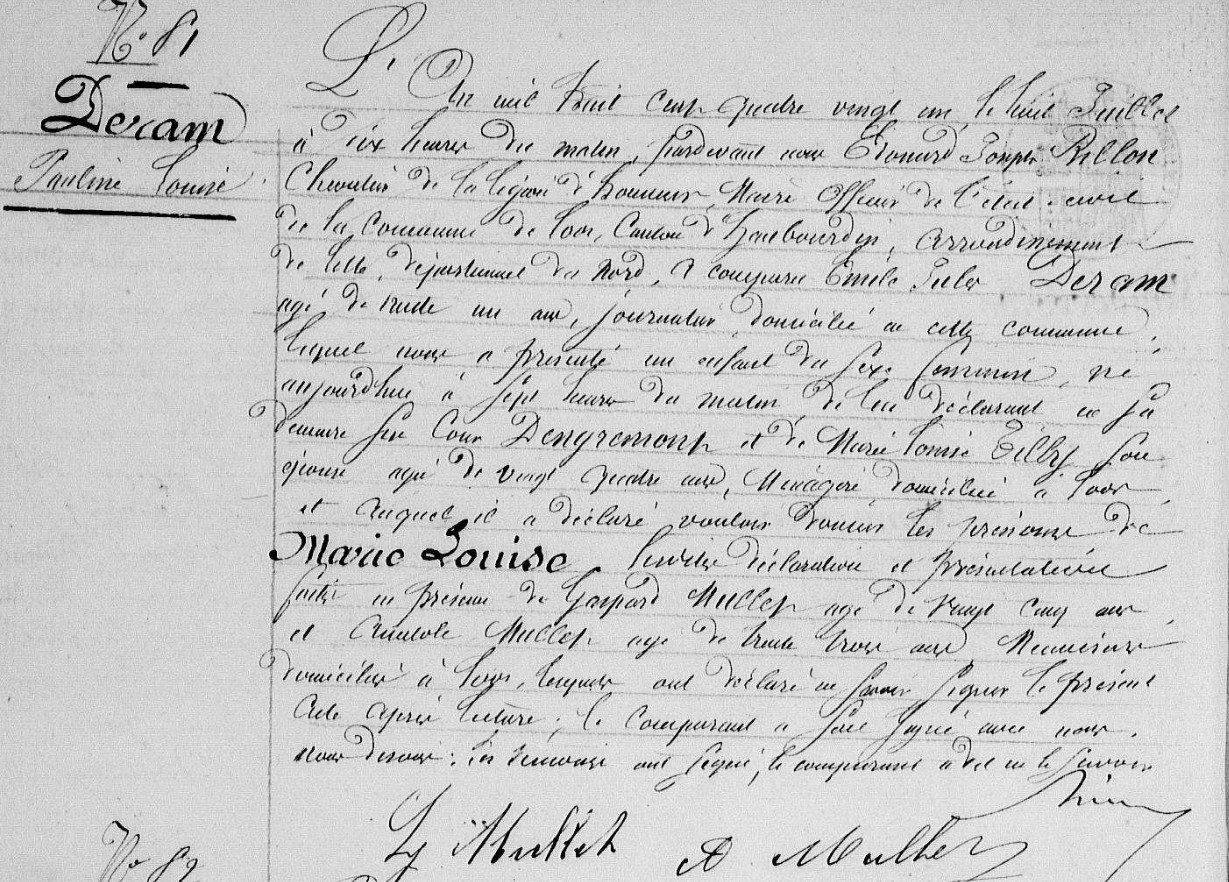 N° 81
Deram
Pauline Louise
L'An mil huit cent quatre vingt un, le huit Juillet
à dix heures du matin, pardevant nous Édouard Joseph Billon
Chevalier de la légion d'honneur, Maire Officier de l'état-civil
de la Commune de Loos, Canton d'Haubourdin, Arrondissement
de Lille, département du Nord, a comparu Emile Jules Deram
agé de trente un ans, journalier, domicilié en cette commune,
lequel nous a présenté un enfant du sexe féminin, né
aujourd'hui à sept heures du matin, de lui déclarant en sa
demeure sise Cour Dengremont et de Marie Louise Tilly son
épouse agée de vingt quatre ans, Ménagère, domiciliée à Loos,
et auquel il a déclaré vouloir donner les prénoms de
Marie Louise. Lesdites déclaration et présentation
faites en présence de Gaspard Mullet agé de vingt cinq ans
et Anatole Mullet agé de trente trois ans
domiciliés à Loos, lesquels ont déclaré savoir signer le présent
acte après lecture; le comparant a signé avec nous.
les témoins ont signé, le comparant a dit ne le savoir
G Mullet A Mullet
N° 82